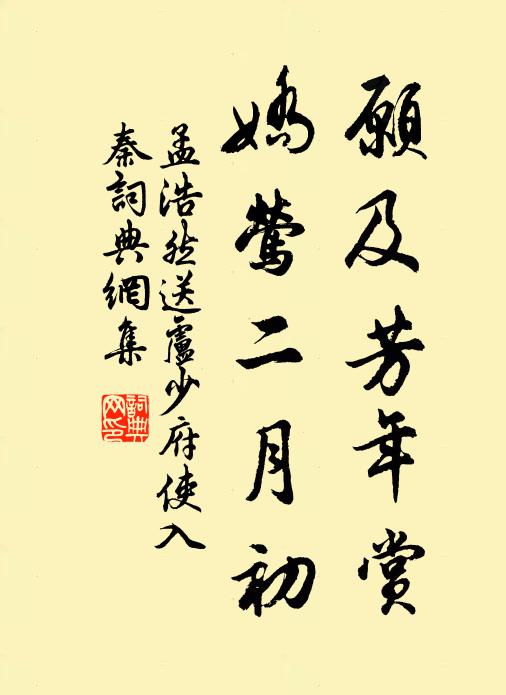 願及芳年賞
嬌鶯二月初
孟浩然送盧少府使入
秦詞典網集
詞典
网印